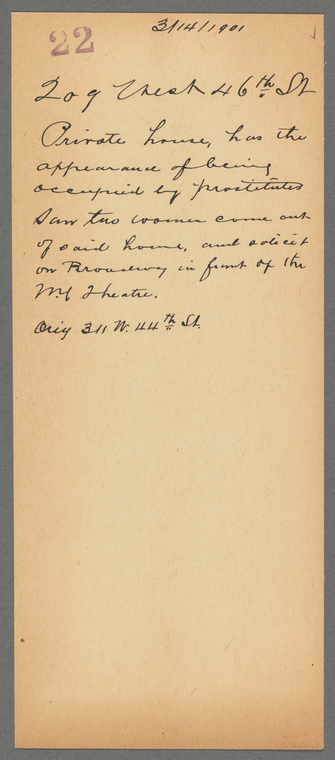 3/14/1901
22
209 West 46th St
Private house, has the
appearance of being
occupied by prostitutes
Saw two women come out
of said house, and solicit
on Broadway in front of the
N.Y. Theatre.
Orig 311 W. 44th St.